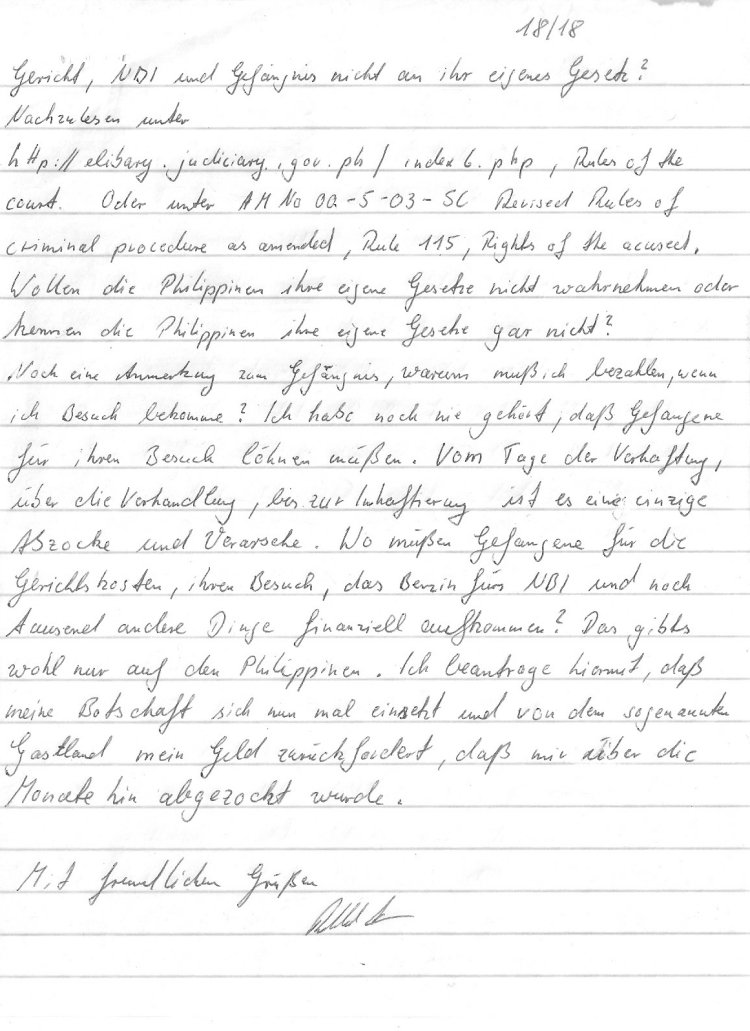 18/18
Gericht, NBI und Gefängnis nicht an ihr eigenes Gesetz?
Nachzulesen unter
http://elibary.judiciary.gov.ph/index6.php, Rules of the
court. Oder unter AM No 00-5-03-SC Revised Rules of
criminal procedure as amended, Rule 115, Rights of the acused.
Wollen die Philippinen ihre eigene Gesetze nicht wahrnehmen oder
kennen die Philippinen ihre eigene Gesetze gar nicht?
Noch eine Anmerkung zum Gefängnis, warum muß ich bezahlen, wenn
ich Besuch bekomme? Ich habe noch nie gehört, daß Gefangene
für ihren Besuch löhnen müßen. Vom Tage der Verhaftung,
über die Verhandlung, bis zur Inhaftierung ist es eine einzige
Abzocke und Verarsche. Wo müßen Gefangene für die
Gerichtskosten, ihren Besuch, das Benzin fürs NBI und noch
tausend andere Dinge finanziell aufkommen? Das gibts
wohl nur auf den Philippinen. Ich beantrage hiermit, daß
meine Botschaft sich nun mal einsetzt und von dem sogenannten
Gastland mein Geld zurückfordert, daß mir über die
Monate hin abgezockt wurde.
Mit freundlichen Grüßen